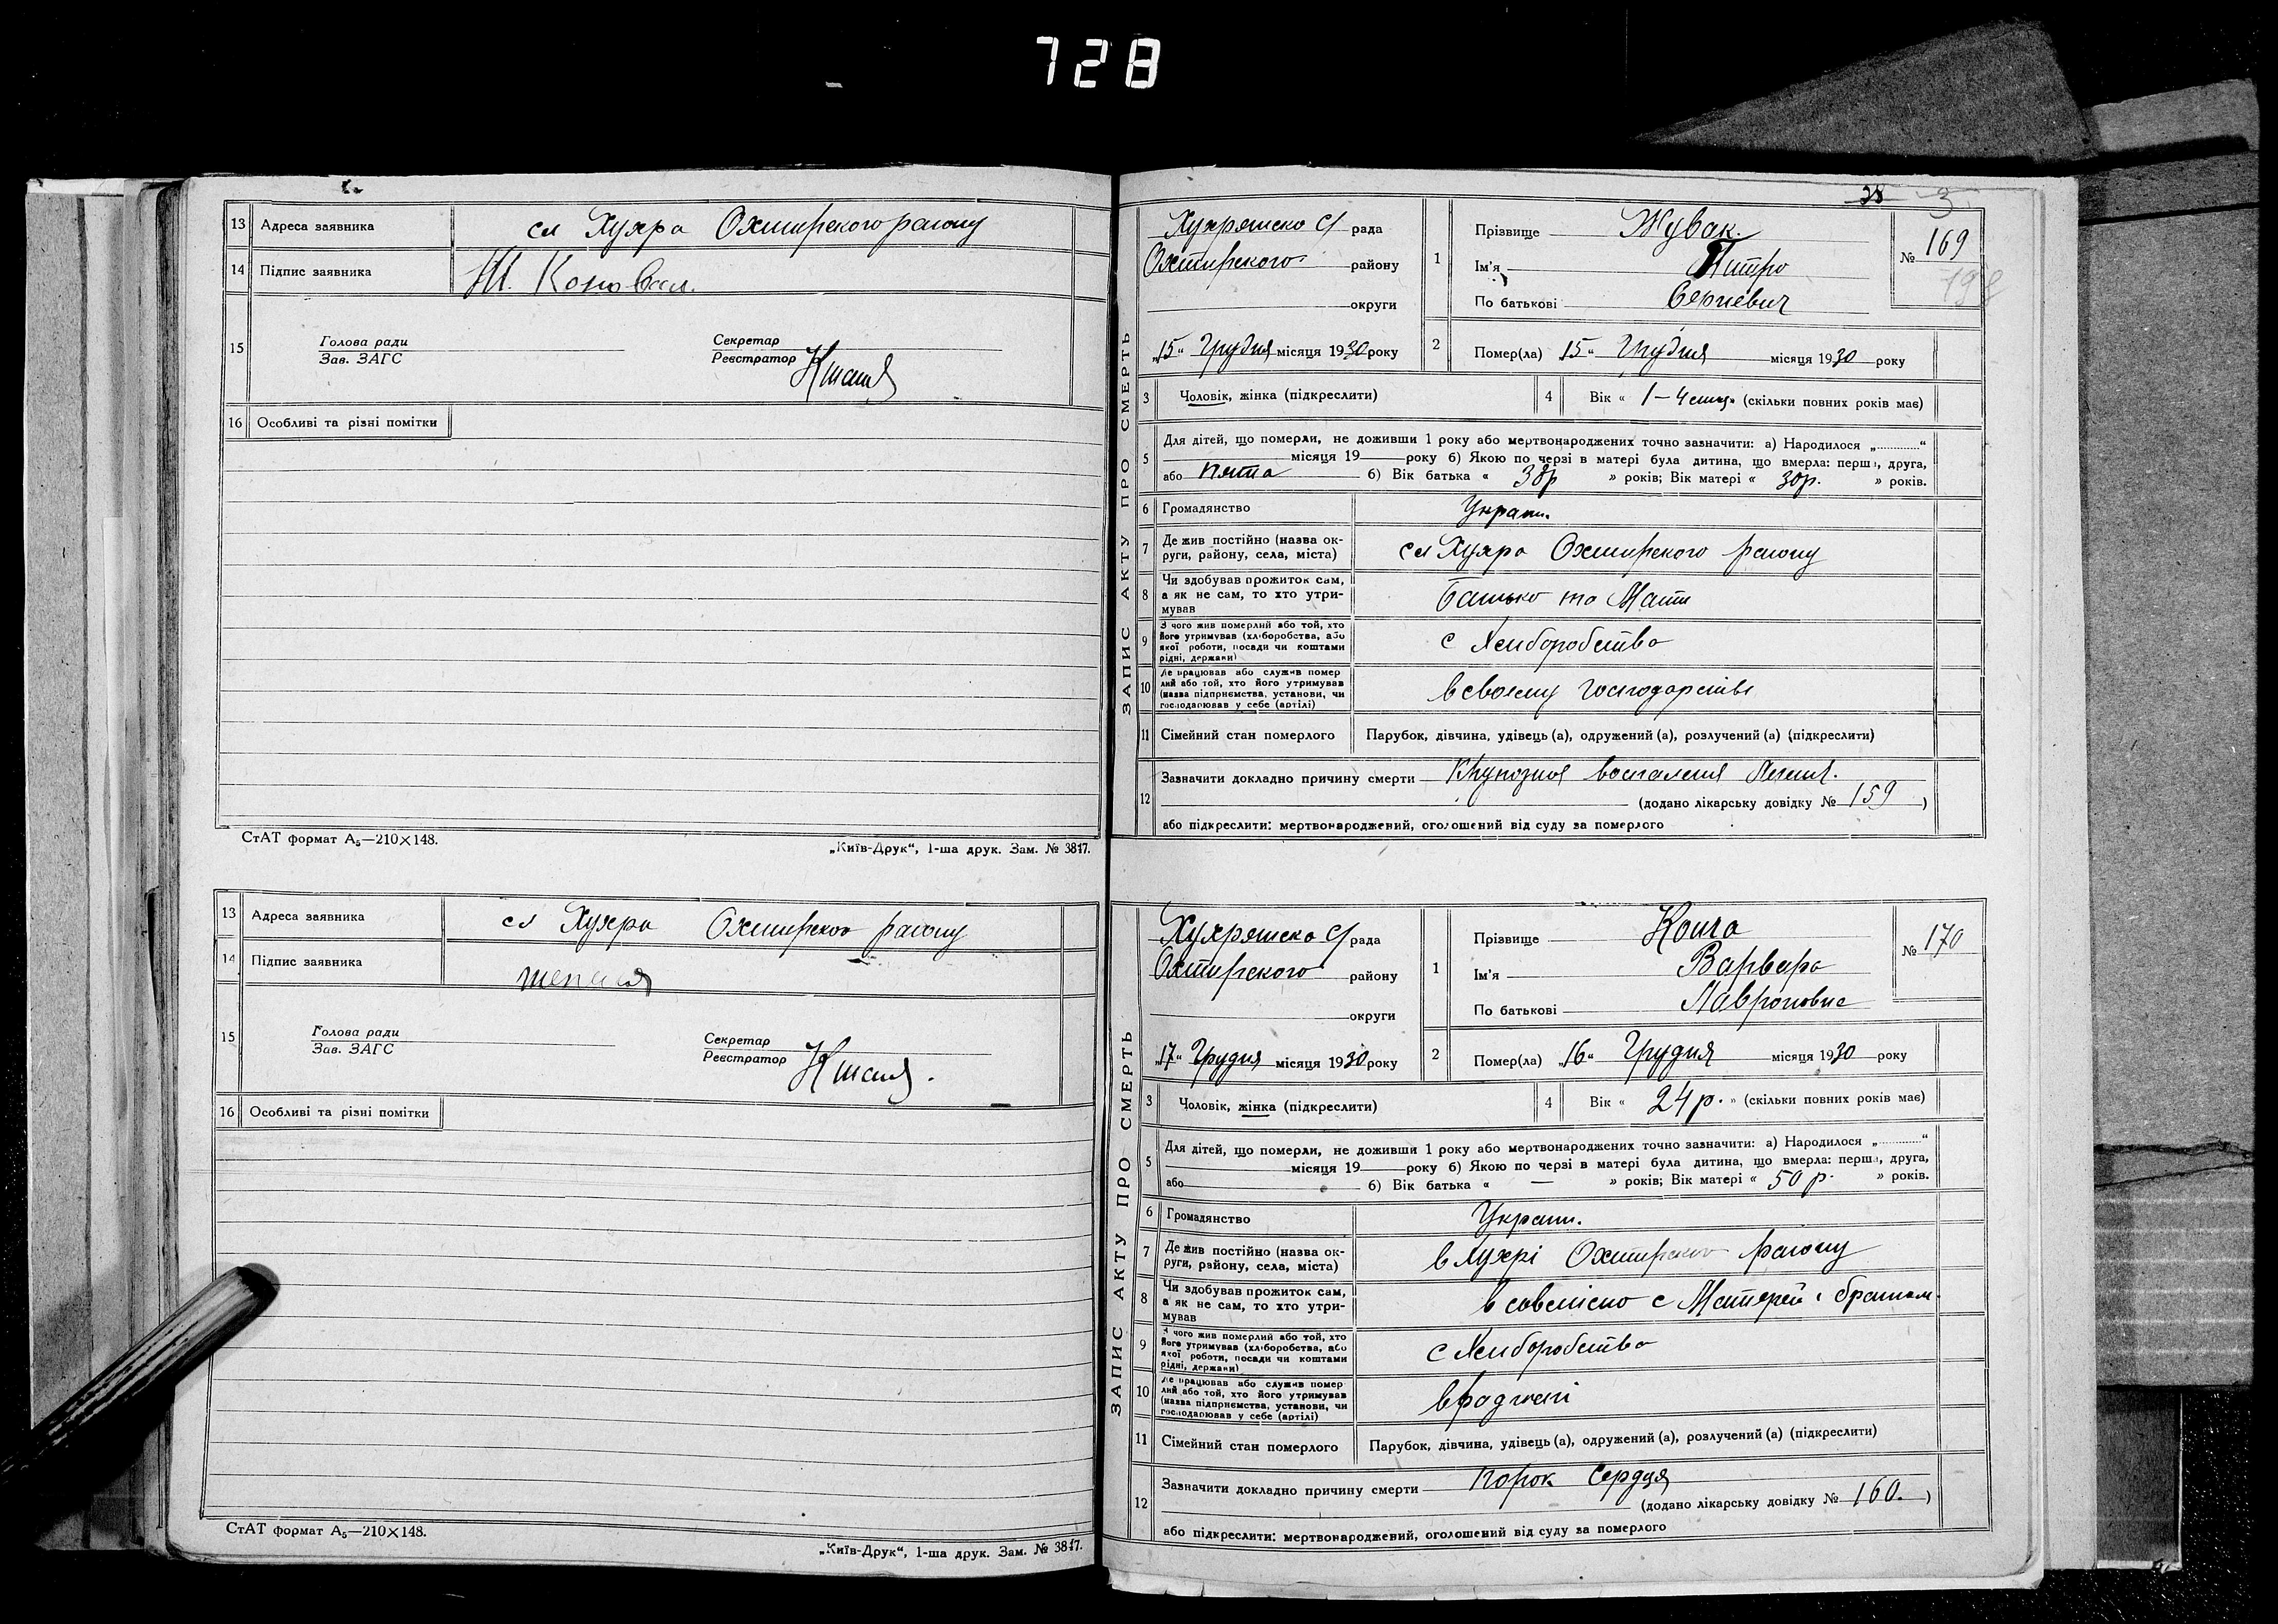 728
13 Адреса заявника сл Хухра Охтирского району
14 Підпис заявника Коновал.
15 Голова ради
Зав. ЗАГС
Секретар
Реєстратор
16 Особливі та різні помітки
СтАТ формат А₅—210×148.
„Київ-Друк“, 1-ша друк. Зам. № 3847.
13 Адреса заявника сл Хухра Охтирского району
14 Підпис заявника
15 Голова ради
Зав. ЗАГС
Секретар
Реєстратор
16 Особливі та різні помітки
СтАТ формат А₅—210×148.
„Київ-Друк“, 1-ша друк. Зам. № 3847.
38 3
ЗАПИС АКТУ ПРО СМЕРТЬ
Хухрянско С/ рада
Охтирского району
округи
„15“ Грудня місяця 1930 року
1 Прізвище Жувак.
Ім'я Питро
По батькові Сергиевич
№ 169
198
2 Помер(ла) 15“ Грудня місяця 1930 року
3 Чоловік, жінка (підкреслити)
4 Вік « 1-4 мц» (скільки повних років має)
5 Для дітей, що померли, не доживши 1 року або мертвонароджених точно зазначити: а) Народилося „ “
місяця 19 року б) Якою по черзі в матері була дитина, що вмерла: перша, друга,
або пята б) Вік батька « 38р » років; Вік матері « 30р. » років.
6 Громадянство Украин.
7 Де жив постійно (назва ок-
руги, району, села, міста) сл Хухра Охтирского району
8 Чи здобував прожиток сам,
а як не сам, то хто утри-
мував Батько та Мати
9 З чого жив померлий або той, хто
його утримував (хліборобства, або
якої роботи, посади чи коштами
рідні, держави) с Хлиборобства
10 Де працював або служив помер
лий або той, хто його утримував
(назва підприємства, установи, чи
господарював у себе (артілі) в своему господарстві
11 Сімейний стан померлого Парубок, дівчина, удівець (а), одружений (а), розлучений (а) (підкреслити)
12 Зазначити докладно причину смерти Крупозное воспаления Легких.
(додано лікарську довідку № 159 )
або підкреслити: мертвонароджений, оголошений від суду за померлого
ЗАПИС АКТУ ПРО СМЕРТЬ
Хухрянско С/ рада
Охтирского району
округи
„17“ Грудня місяця 1930 року
1 Прізвище
Ім'я Варвара
По батькові
№ 170
2 Помер(ла) „16“ Грудня місяця 1930 року
3 Чоловік, жінка (підкреслити)
4 Вік « 24 р. » (скільки повних років має)
5 Для дітей, що померли, не доживши 1 року або мертвонароджених точно зазначити: а) Народилося „ “
місяця 19 року б) Якою по черзі в матері була дитина, що вмерла: перша, друга,
або б) Вік батька « — » років; Вік матері « 50 р. » років.
6 Громадянство Украин.
7 Де жив постійно (назва ок-
руги, району, села, міста) в Хухрі Охтирского району
8 Чи здобував прожиток сам,
а як не сам, то хто утри-
мував в совмісно с Матерей і братом.
9 З чого жив померлий або той, хто
його утримував (хліборобства, або
якої роботи, посади чи коштами
рідні, держави) с Хлиборобства
10 Де працював або служив помер
лий або той, хто його утримував
(назва підприємства, установи, чи
господарював у себе (артілі)
11 Сімейний стан померлого Парубок, дівчина, удівець (а), одружений (а), розлучений (а) (підкреслити)
12 Зазначити докладно причину смерти порок Сердця
(додано лікарську довідку № 160. )
або підкреслити: мертвонароджений, оголошений від суду за померлого